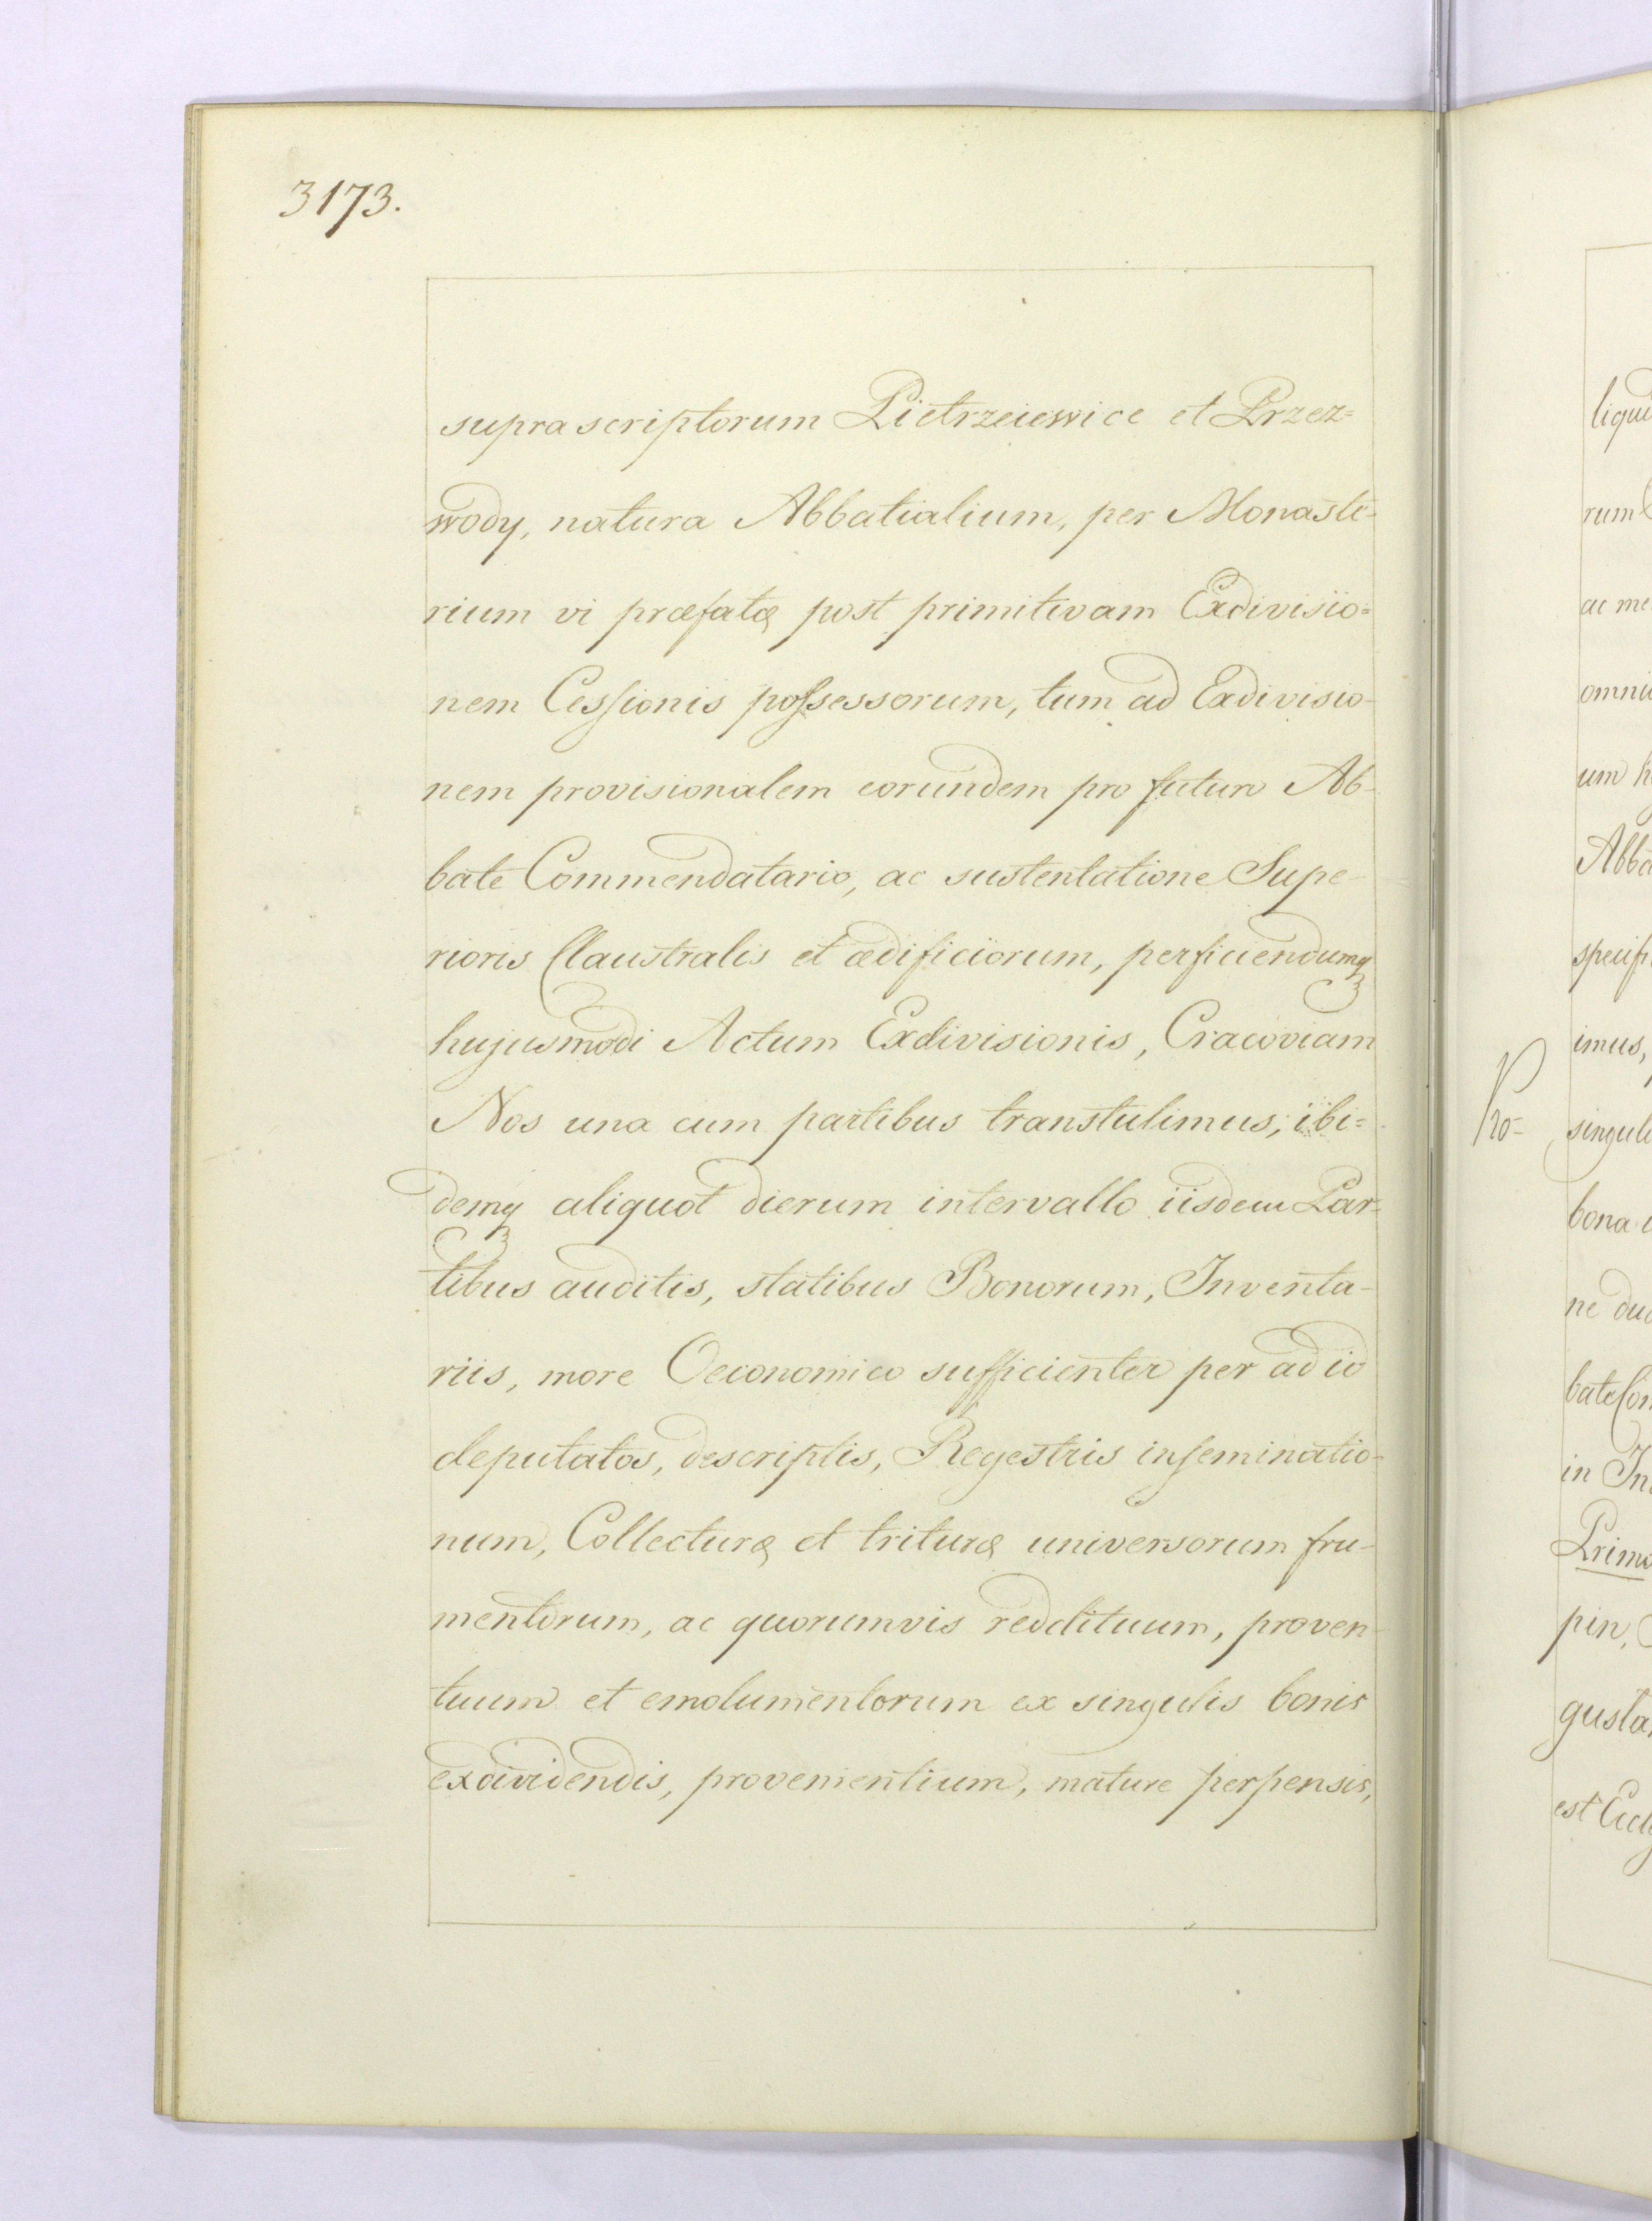 3173.
supra scriptorum Pietrzeiewice et Przez=
wody, natura Abbatialium, per Monaste-
rium vi præfatæ post primitivam Exdivisio=
nem Cessionis possessorum, tum ad Exdivisio-
nem provisionalem eorundem pro futuro Ab-
bate Commendatario, ac sustentatione Supe-
rioris Claustralis et ædificiorum, perficiendumq
hujusmodi Actum Exdivisionis, Cracoviam
Nos una cum partibus transtulimus, ibi=
demq aliquot dierum intervallo iisdem Par=
tibus auditis, statibus Bonorum, Inventa-
riis, more Oeconomico sufficienter per ad id
deputatos, descriptis, Regestris inseminatio=
num, Collecturæ et trituræ universorum fru-
mentorum, ac quorumvis reddituum, proven-
tuum et emolumentorum ex singulis bonis
exdividendis, provenientium, mature perpensis,
liqui
rum
ac me
omni
um h
Abba
specifi
imus,
Pro=
singuli
bona
ne du
bate Com
in In
Prim
pin,
gusta
est